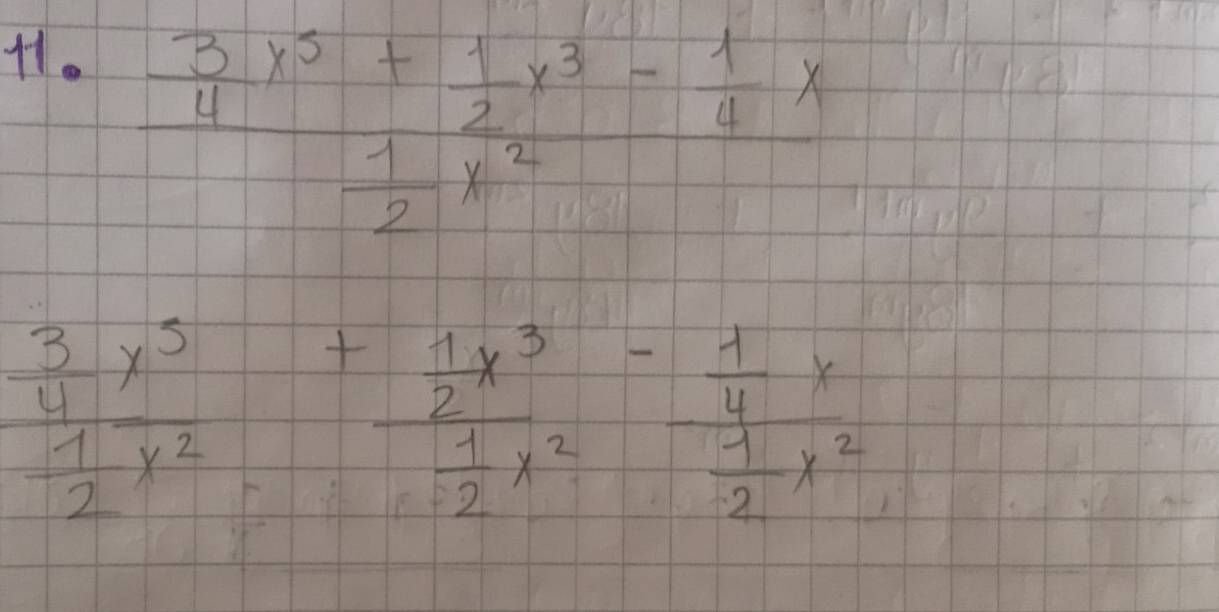 11. (3/4 x^5 + 1/2 x^3 - 1/4 x) / (1/2 x^2)
(3/4 x^5) / (1/2 x^2) + (1/2 x^3) / (1/2 x^2) - (1/4 x) / (1/2 x^2)